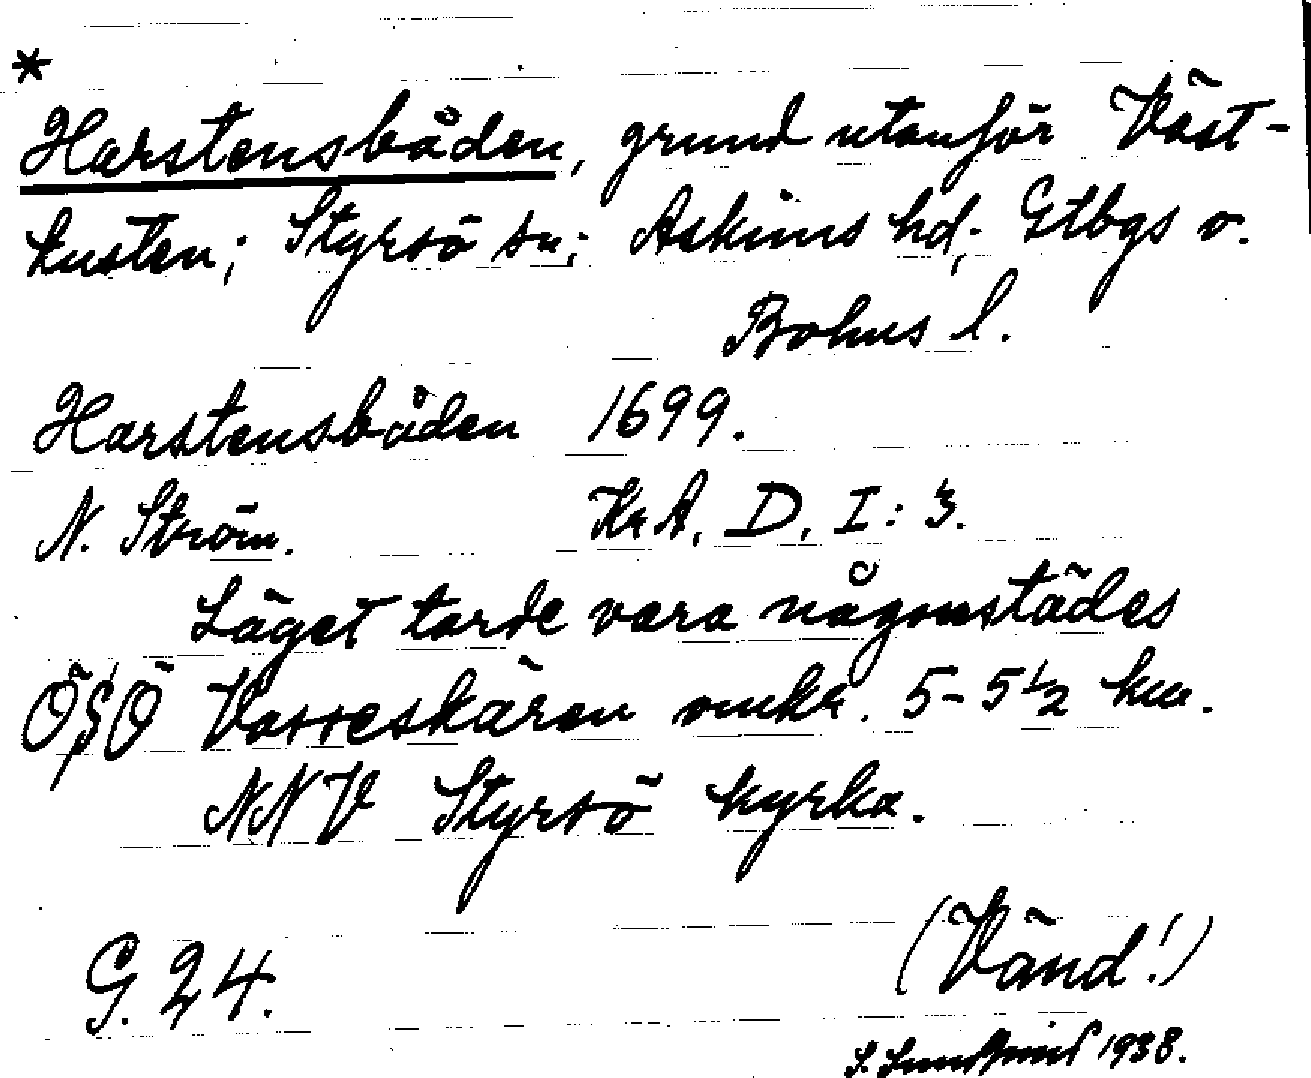 *
Harstensbåden, grund utanför Väst-
kusten; Styrsö sn; Askims hd; Gtbgs o.
Bohus l.
Harstensbåden 1699.
N. Ström. KrA, D, I: 3.
Läget torde vara någonstädes
ÖSÖ Varreskären omkr. 5-5 1/2 km.
NNV Styrsö kyrka.
G. 24. (Vänd!)
S. 1938.